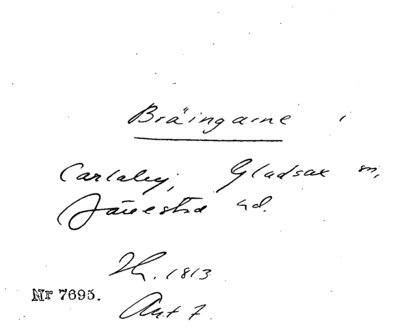 Bräingarne i
Carlaby, Gladsax m,
Järrestad hd.
Th. 1813
Nr 7695.
Akt 7